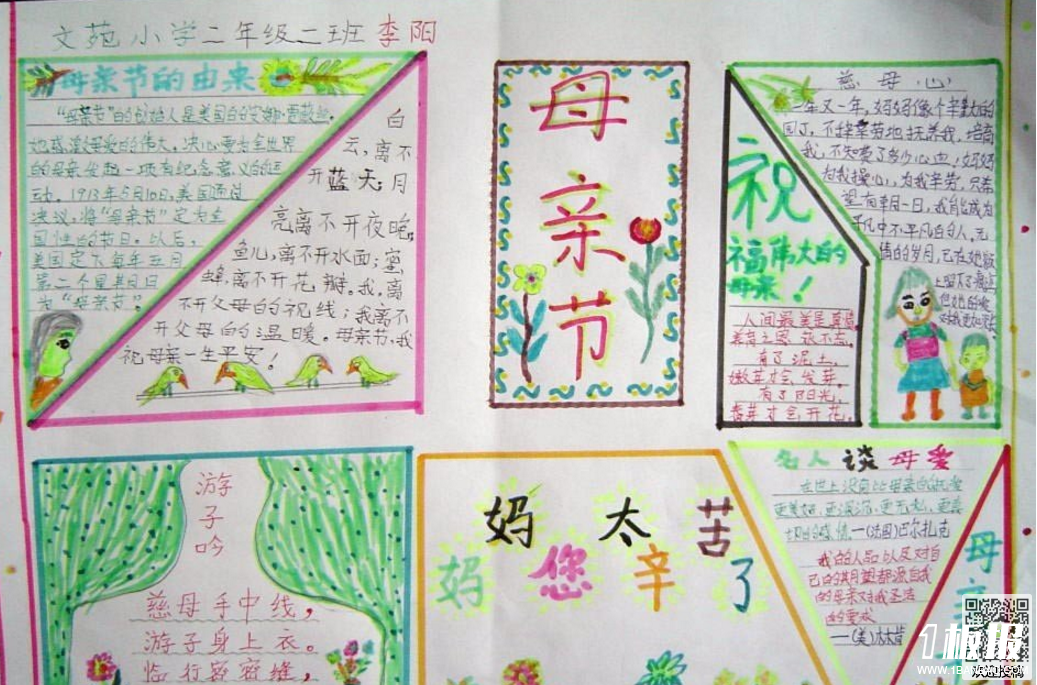 文苑小学二年级二班 李阳
母亲节的由来
“母亲节”的创始人是美国的安娜·
她感激母爱的伟大。决心要为全世界
的母亲发起一项有纪念意义的运
动。1913年5月10日,美国通过
决议,将“母亲节”定为全
国性的节日。以后,
美国定下每年五月
第二个星期日
为“母亲节”。
白
云,离不
开蓝天;月
亮离不开夜晚;
鱼儿,离不开水面;蜜
蜂,离不开花瓣。我,离
不开父母的视线;我离不
开父母的温暖。母亲节,我
祝母亲一生平安!
母亲节
祝
福伟大的
母亲!
人间最美是真情,
养育之恩永不忘。
有了泥土,
嫩芽才会发芽。
有了阳光,
花
才会开花。
慈母心
一年又一年,妈妈像个辛勤的
园丁,不辞辛劳地抚养我,培育
我,不知费了多少心血,妈妈
为我操心,为我辛劳,只希
望有朝一日,我能成为
平凡中不平凡的人。无
情的岁月,已在她
上留下了痕迹
游子吟
慈母手中线,
游子身上衣。
临行密密缝,
妈妈您太辛苦了
名人谈母爱
在世上没有比母亲的
更美好,更深沉,更无私,更真
—(法国)巴尔扎克
我的人品以及对自
己的期望都源自我
的母亲对我圣洁
的要求
—(美)
母
1板报
WWW.1B
欢迎投稿